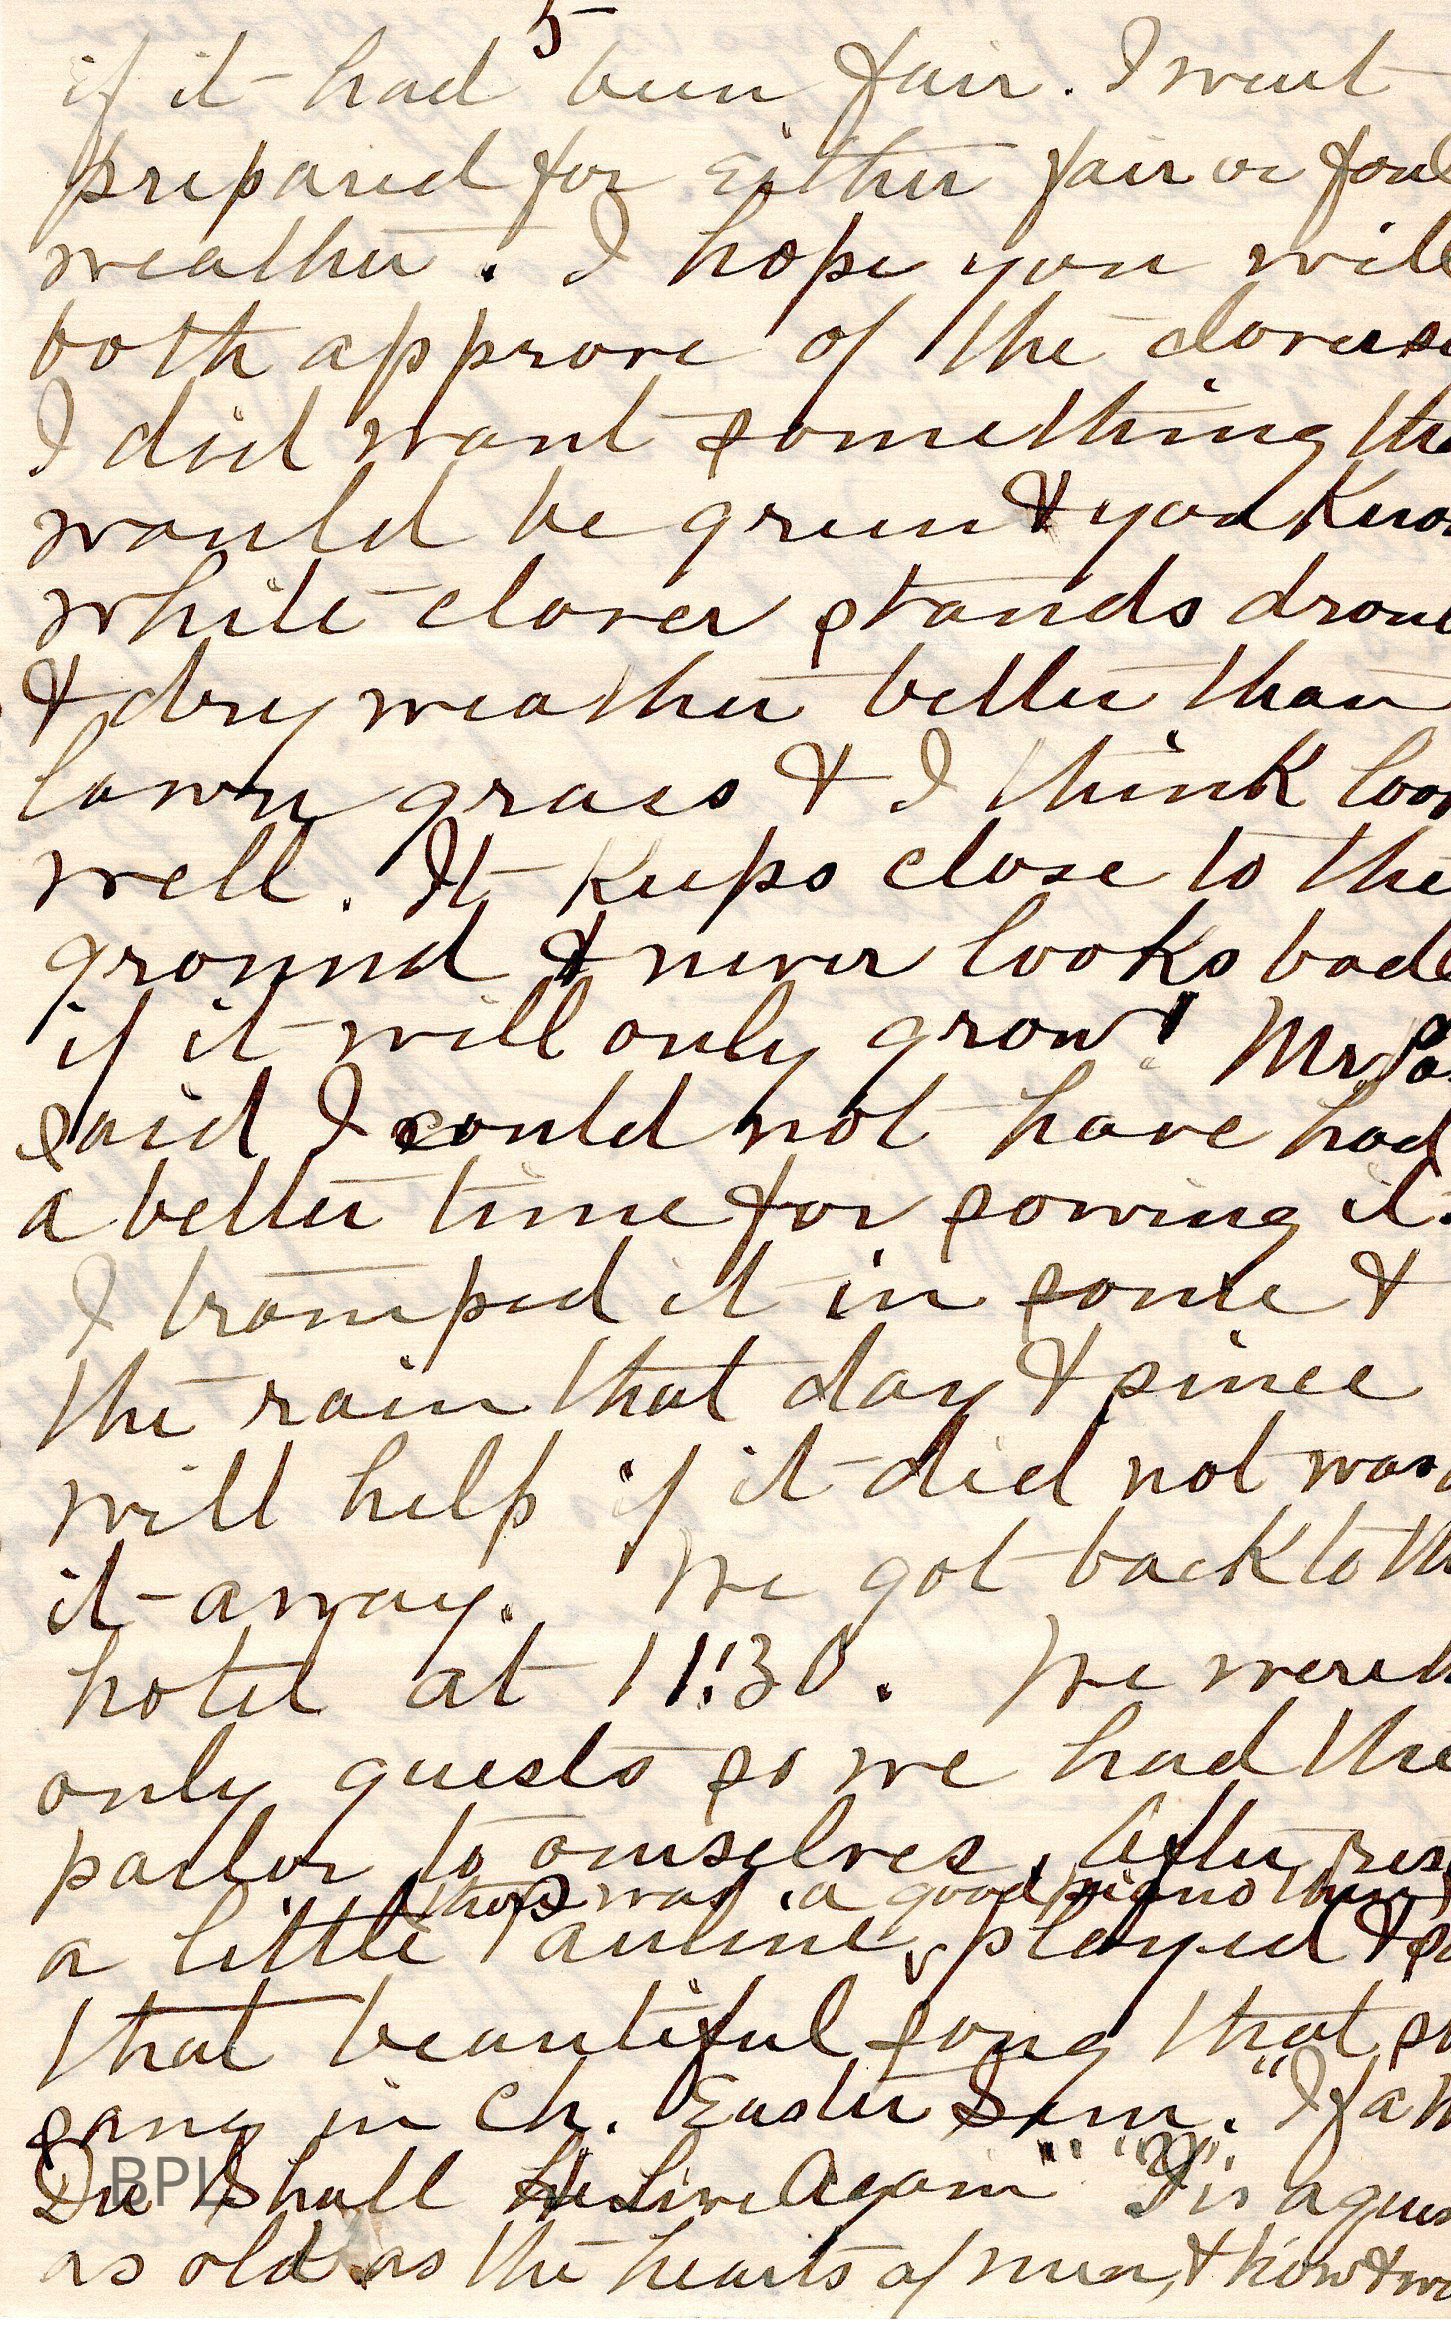 5
if it had been fair. I went
prepared for either fair or foul
weather. I hope you will
both approve of the clover
I did want something tha
would be green & you know
white clover stands drou
& dry weather better than
lawn grass & I think loo
well. It keeps close to the
ground & never looks bad
if it will only grow! Mr. Pa
said I could not have had
a better time for sowing it.
I tramped it in some &
the rain that day & since
will help if it did not was
it away. We got back to th
hotel at 11:30. We were th
only guests so we had the
parlor to ourselves. After res
there was a good piano there
a little Pauline played & sa
that beautiful song that sh
sang in ch. Easter Sun. "If a M
Die Shall He Live Again" "'Tis a ques
as old as the hearts of men, &
BPL